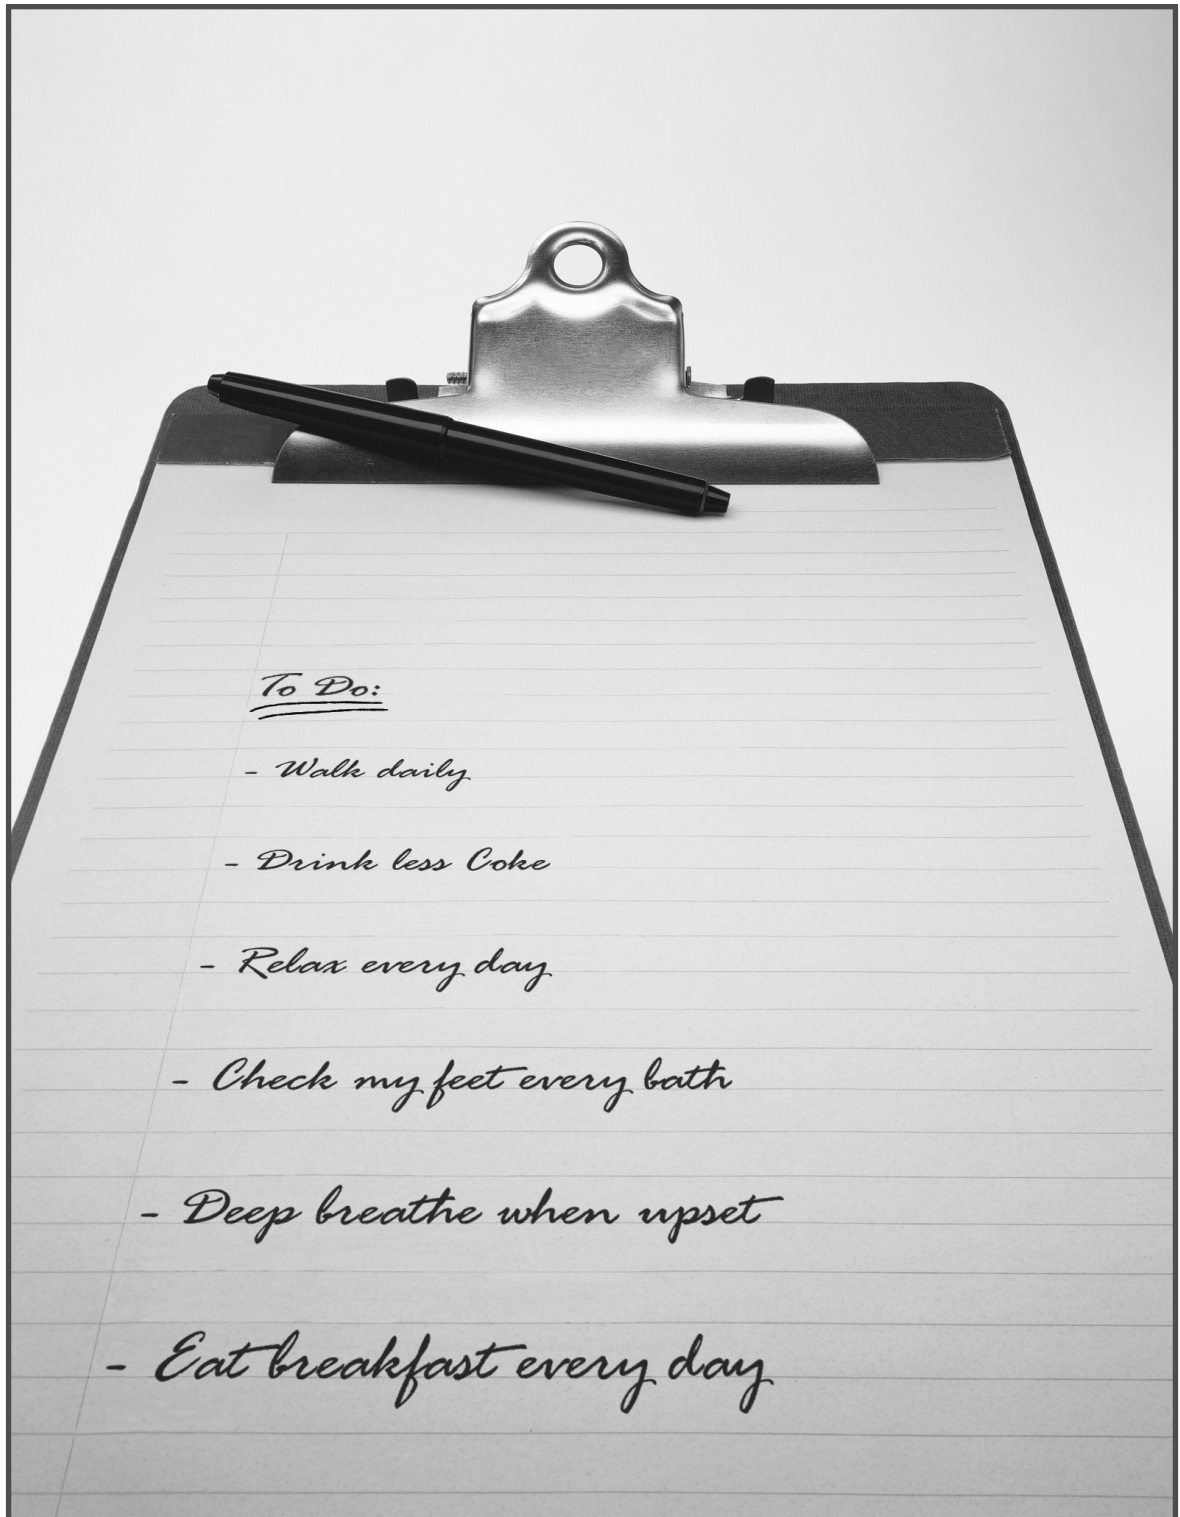 To Do:
- Walk daily
- Drink less Coke
- Relax every day
- Check my feet every bath
- Deep breathe when upset
- Eat breakfast every day